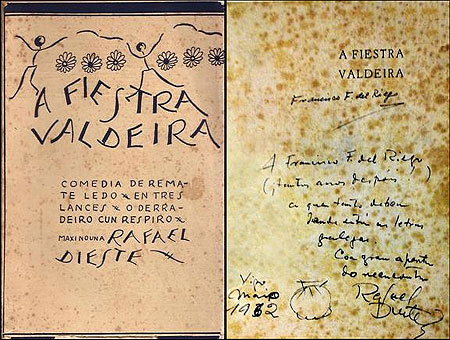 A FIESTRA
VALDEIRA
COMEDIA DE REMA-
TE LEDO × EN TRES
LANCES × O DERRA-
DEIRO CUN RESPIRO ×
MAXINOUNA RAFAEL
DIESTE
A FIESTRA
VALDEIRA
Francisco F. del Riego
A Francisco F. del Riego
(¡Tantos anos despois!)
a quen tanto deben
as letras
galegas.
Con gran aperta
do reencontro
Rafael
Dieste
Vigo
Maio